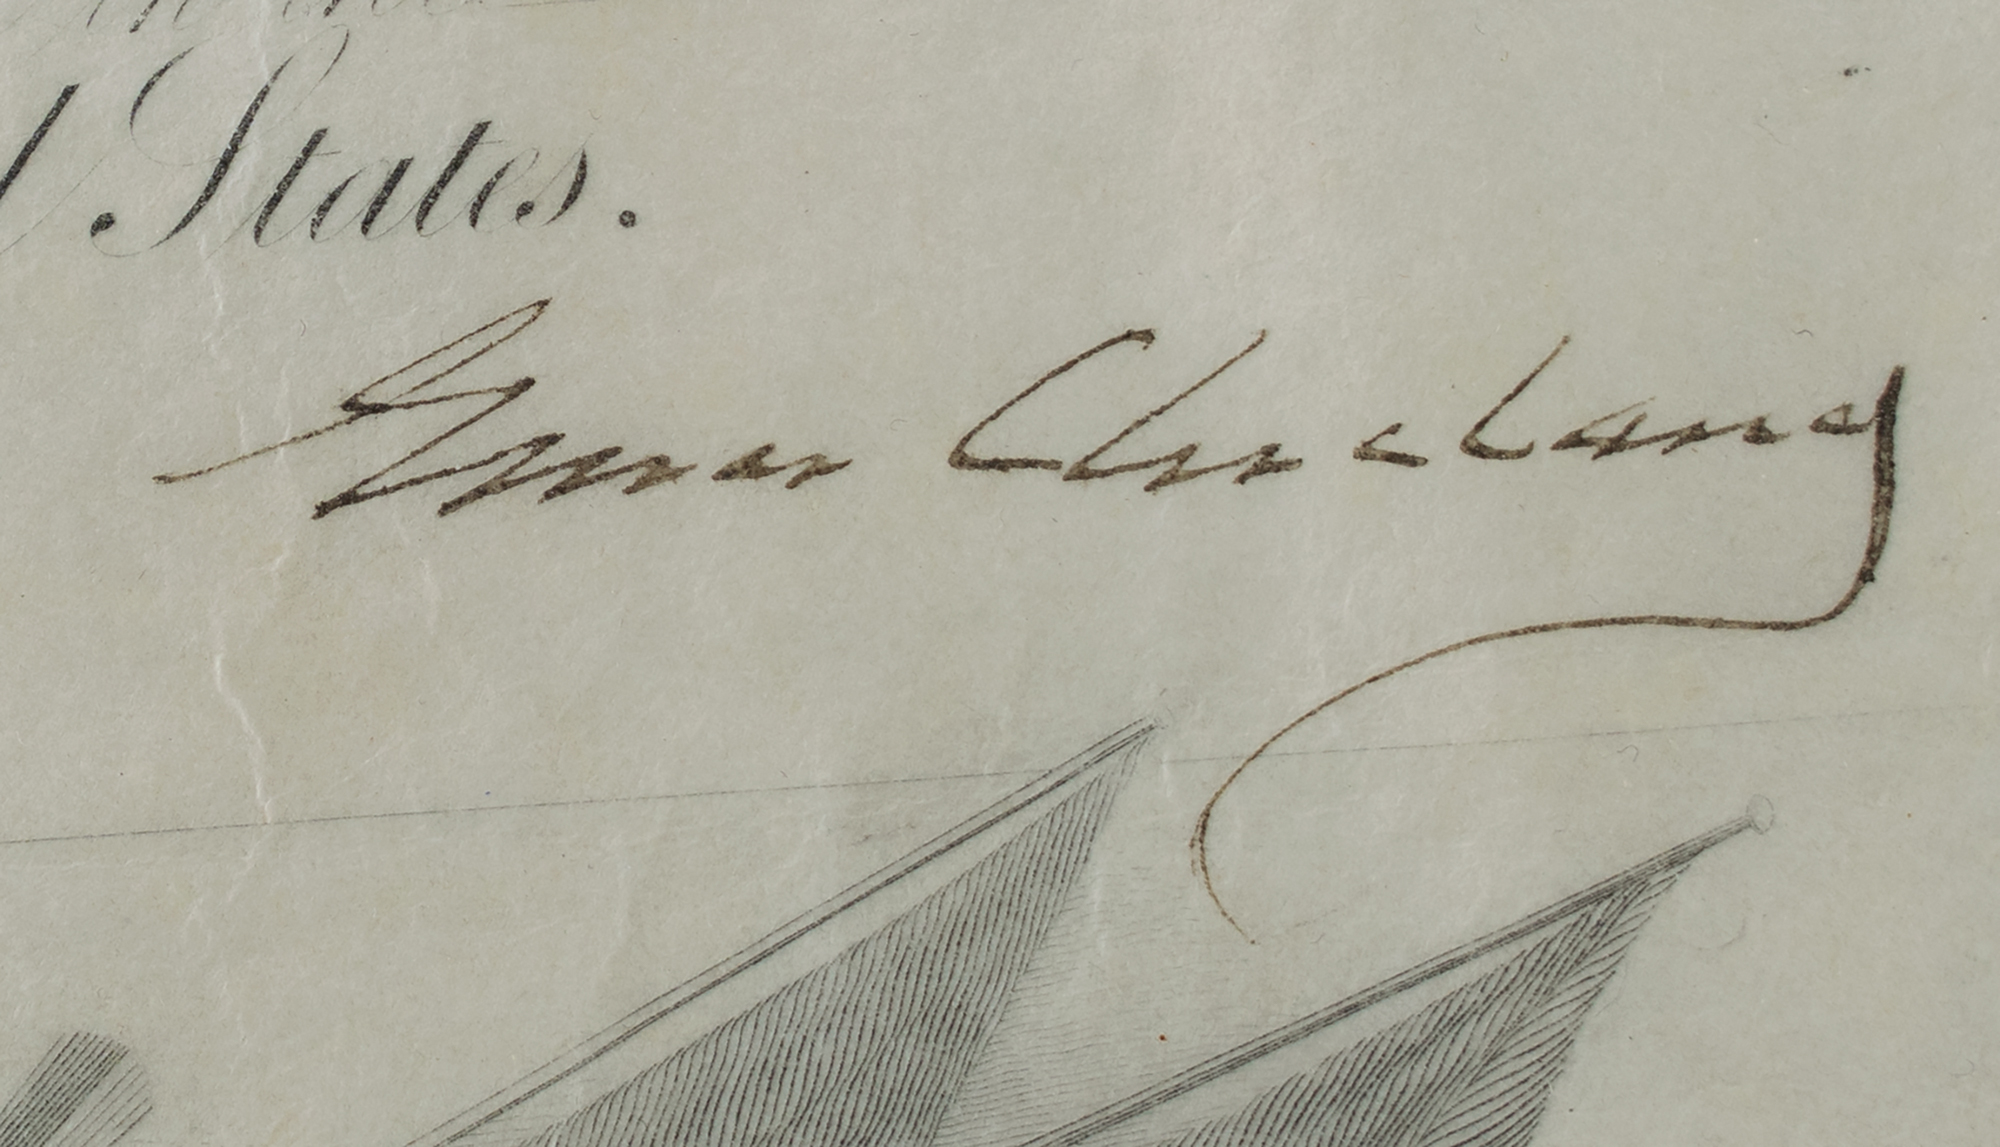 States.
Grover Cleveland